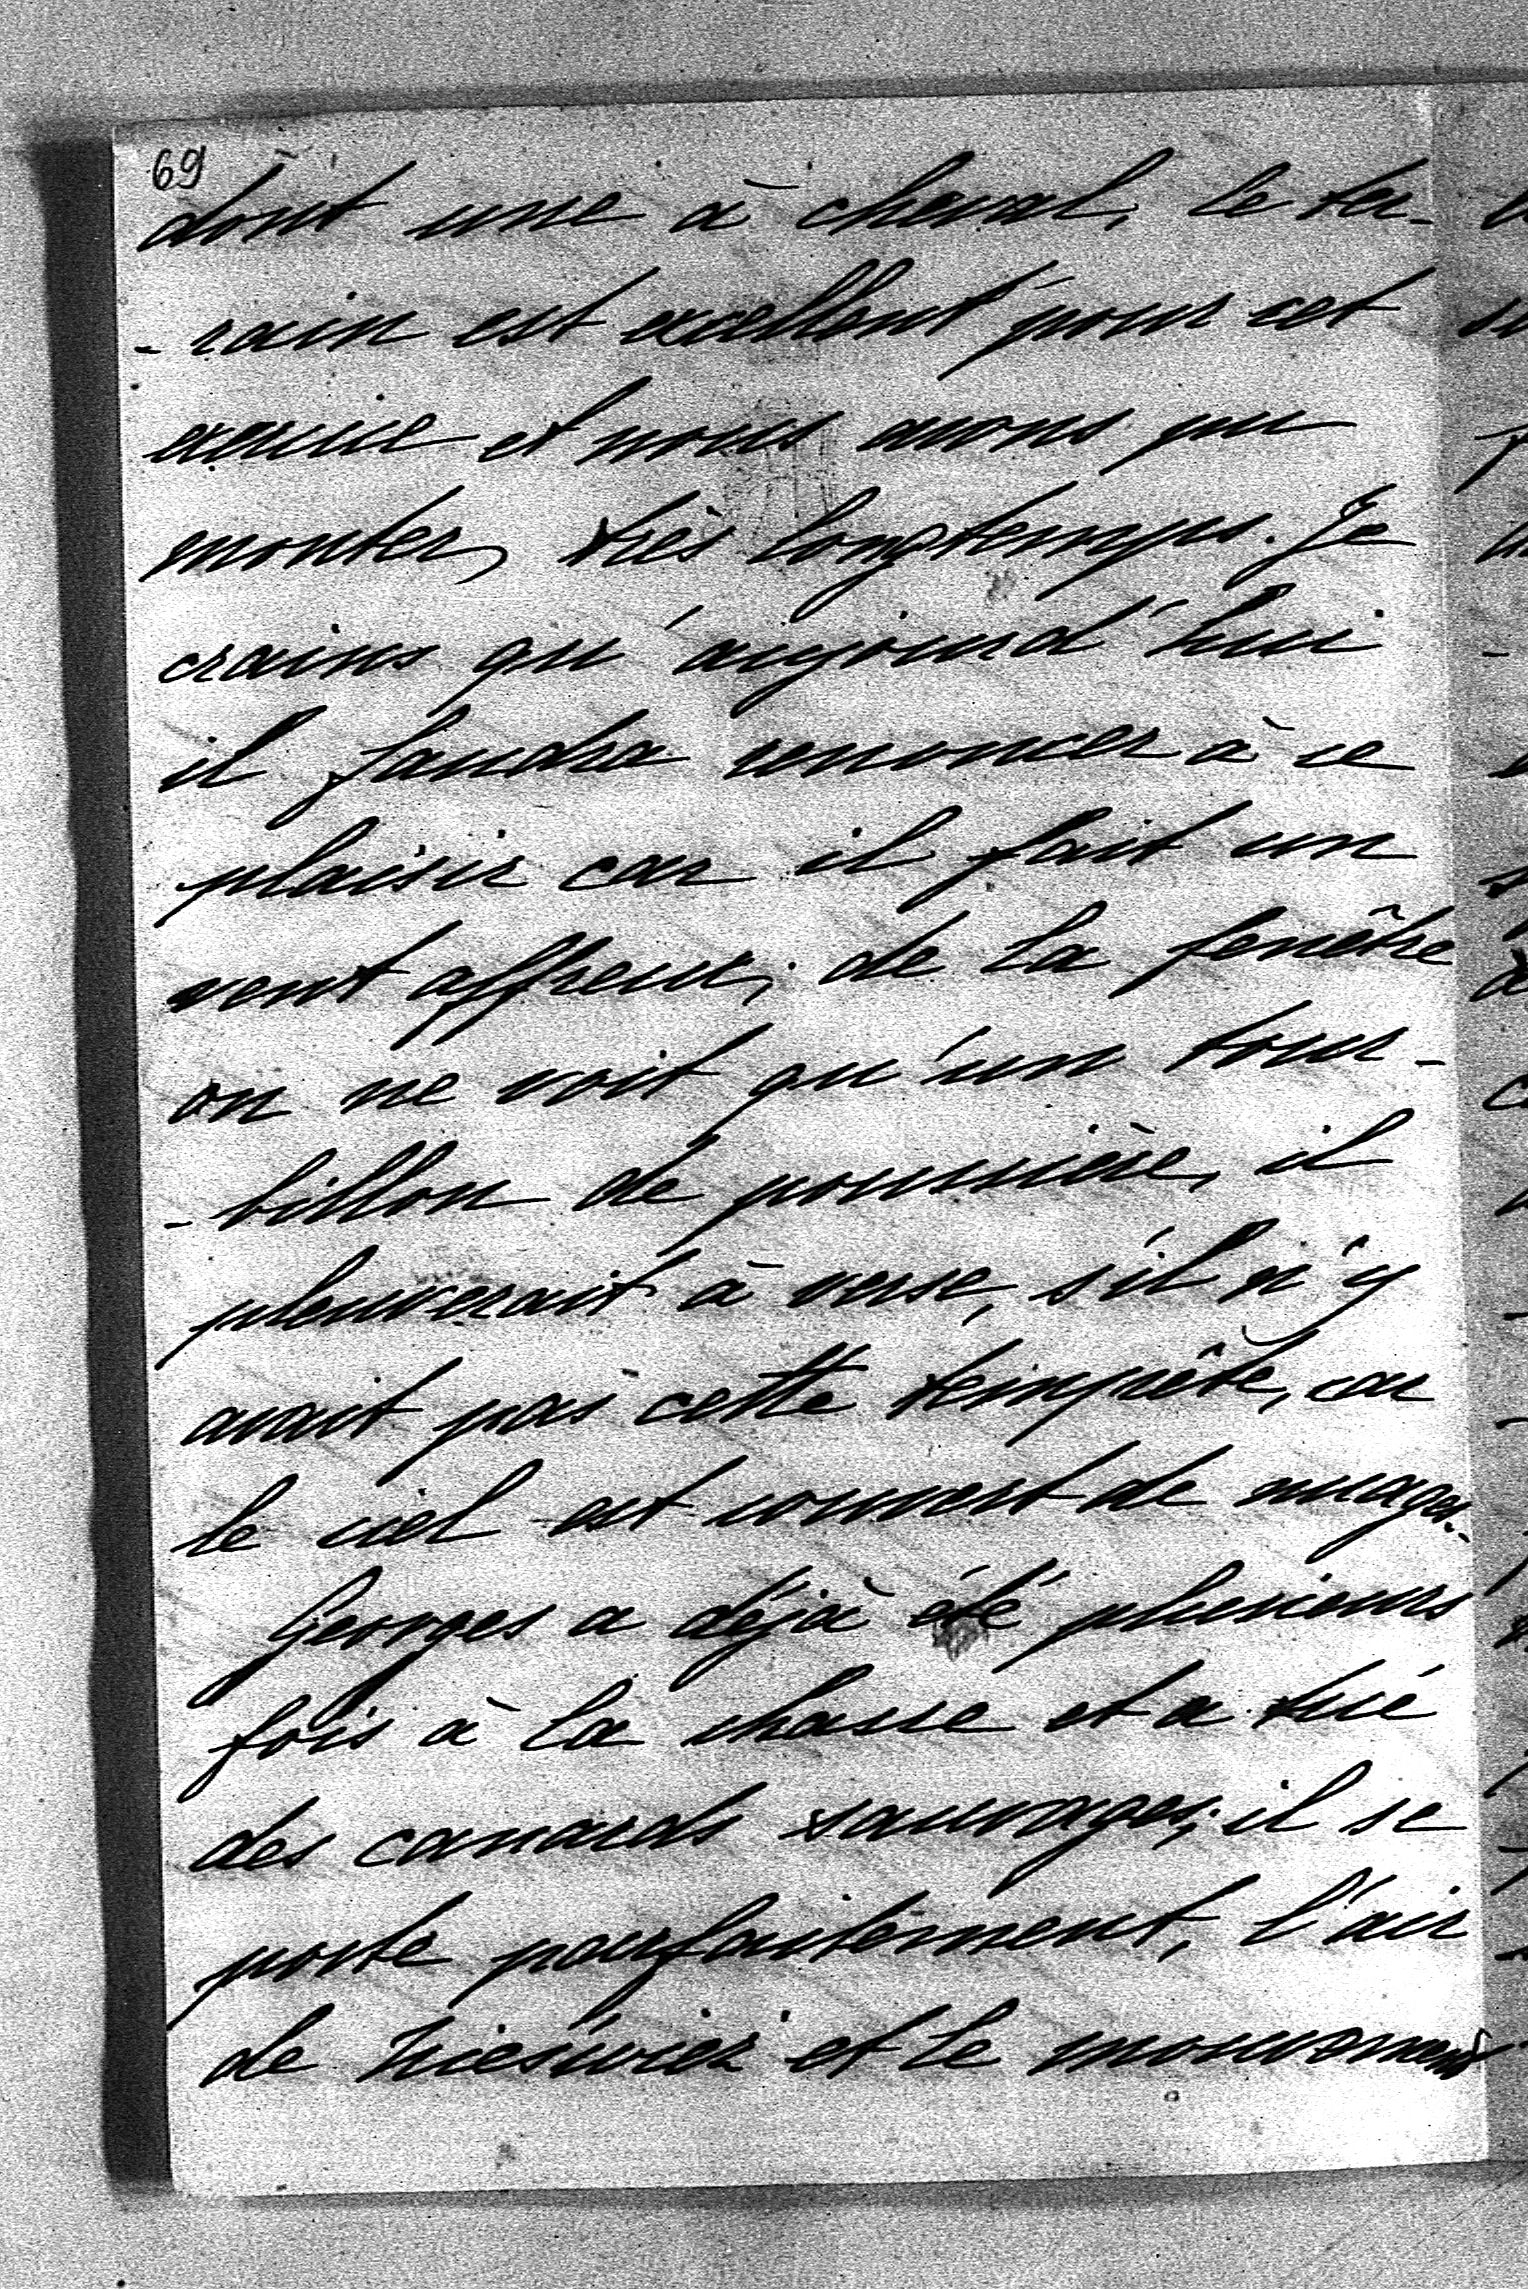 69
dont une à cheval, le ter-
-rain est excellent pour cet
exercice et nous avons pu
monter très longtemps. Je
crains qu'aujourd'hui
il faudra renoncer à ce
plaisir car il fait un
vent affreux, de la fenêtre
on ne voit qu'un tour-
-billon de poussière, il
pleuverait à verse, s'il n'y
avait pas cette tempête, car
le ciel est couvert de nuages.
Georges a déjà été plusieurs
fois à la chasse et a tué
des canards sauvages, il se
porte parfaitement, l'air
de et le mouvement